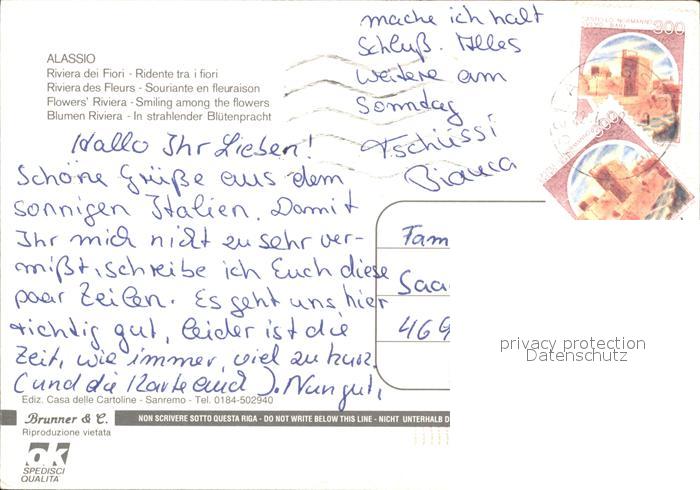 ALASSIO
Riviera dei Fiori - Ridente tra i fiori
Riviera des Fleurs - Souriante en fleuraison
Flowers' Riviera - Smiling among the flowers
Blumen Riviera - In strahlender Blütenpracht
Hallo Ihr Lieben!
Schöne Grüße aus dem
sonnigen Italien. Damit
Ihr mich nicht zu sehr ver-
mißt, schreibe ich Euch diese
paar Zeilen. Es geht uns hier
richtig gut, leider ist die
Zeit, wie immer, viel zu kurz.
(und die Karte auch). Nun gut,
mache ich halt
Schluß. Alles
weitere am
Sonntag
Tschüssi
Bianca
CASTELLO NORMANNO
SVEVO BARI
300
300
Fam
Saa
469
privacy protection
Datenschutz
Ediz. Casa delle Cartoline - Sanremo - Tel. 0184-502940
Brunner & C.
NON SCRIVERE SOTTO QUESTA RIGA - DO NOT WRITE BELOW THIS LINE - NICHT UNTERHALB D
Riproduzione vietata
ok
SPEDISCI
QUALITÀ